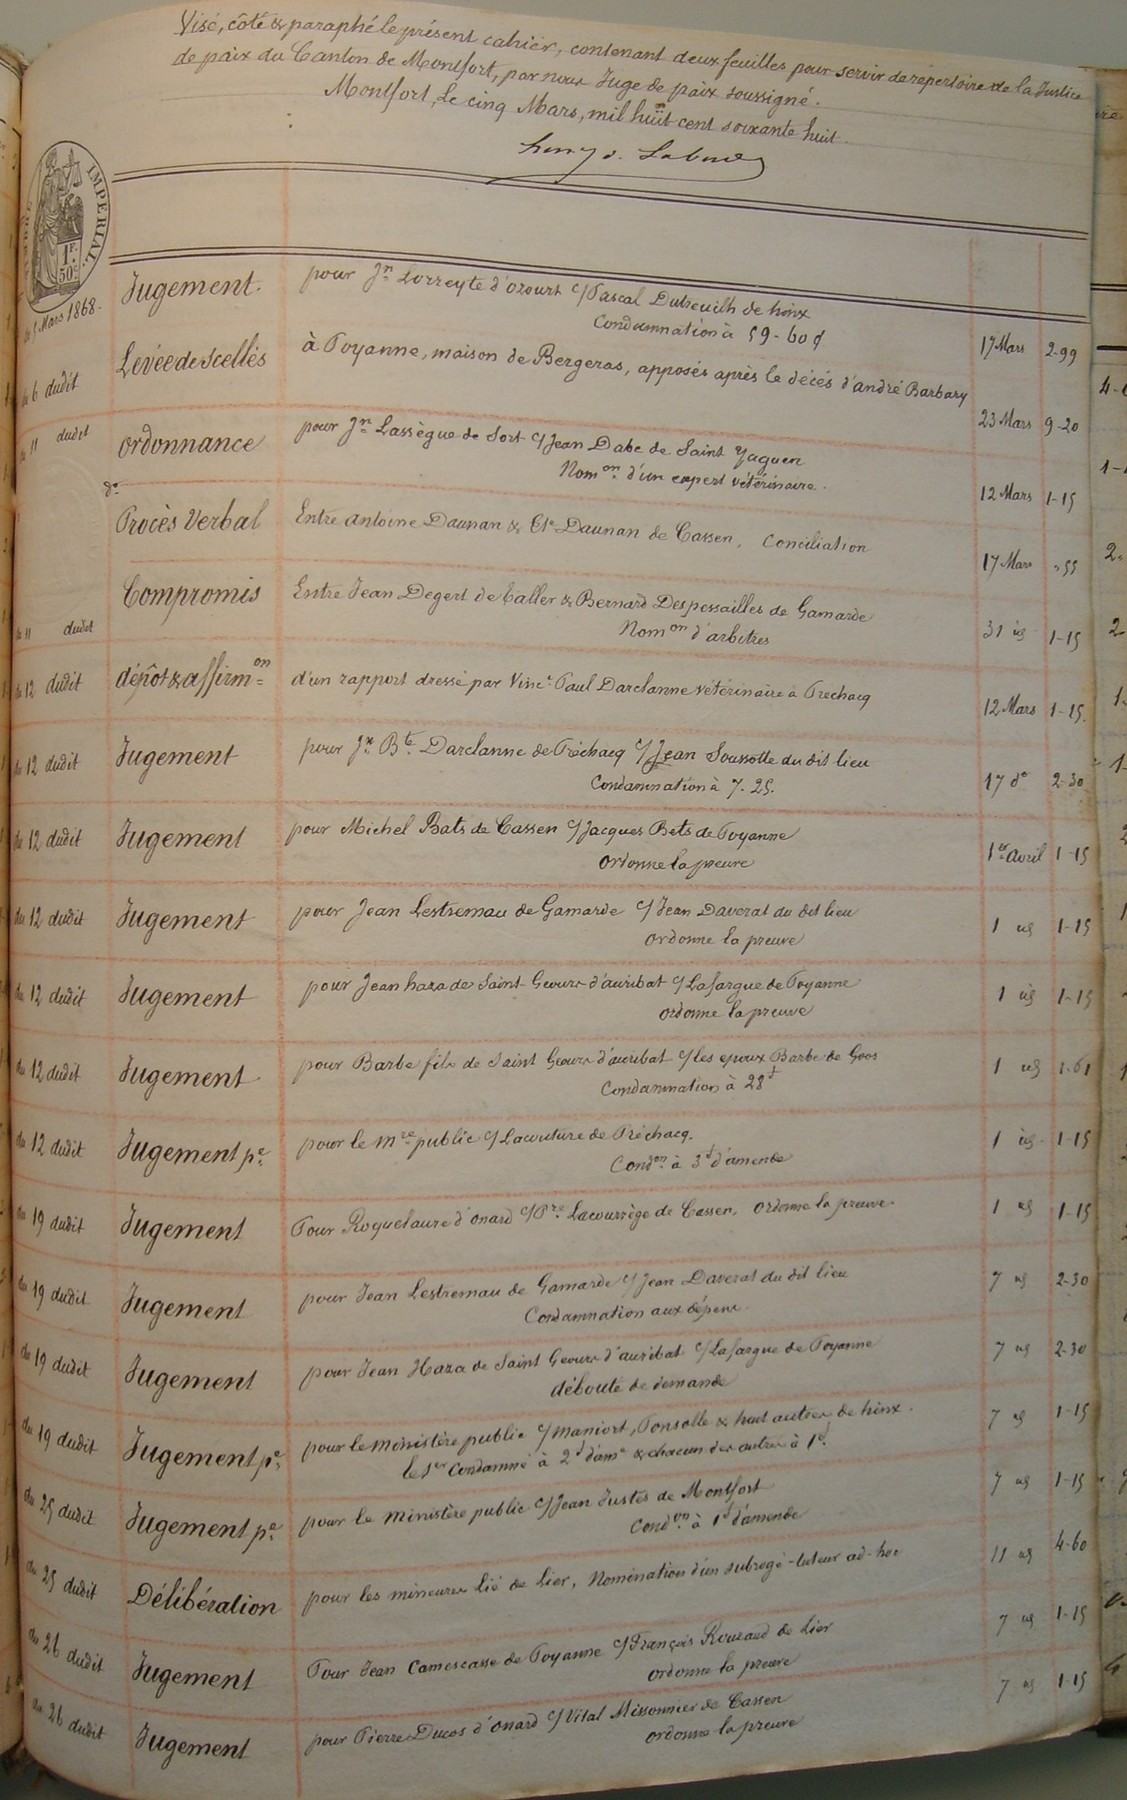 Visé, côté & paraphé le présent cahier, contenant deux feuilles pour servir de répertoire de la Justice
de paix du Canton de Montfort, par nous Juge de paix soussigné.
Montfort, Le cinq Mars, mil huit cent soixante huit.
TIMBRE IMPERIAL
1 F. 50 c.
du 5 Mars 1868. Jugement. pour Jn Lorreyte d'ozourt c/ Pascal Dutreuilh de hinx
Condamnation à 59-60 c 17 Mars 2-99
du 6 dudit Levée de Scellés à Poyanne, maison de Bergeras, apposés après le décés d'andré Barbary 23 Mars 9-20
du 11 dudit ordonnance pour Jn Lassègue de Sort c/ Jean Dabe de Saint Yaguen
Nomon d'un expert vétérinaire. 12 Mars 1-15
do Procès Verbal Entre antoine Daunan & Daunan de Cassen, Conciliation 17 Mars -55
du 11 dudit Compromis Entre Jean Degert de Taller & Bernard Despessailles de Gamarde
Nomon d'arbitres 31 1-15
du 12 dudit dépôt & affirmon d'un rapport dressé par Vinct Paul Darclanne vétérinaire à Préchacq 12 Mars 1-15.
du 12 dudit Jugement pour Jn Bte Darclanne de Préchacq c/ Jean Soussotte du dit lieu
Condamnation à 7.25. 17 do 2-30
du 12 dudit Jugement pour Michel Bats de Cassen c/ Jacques Bets de Poyanne
ordonne la preuve 1er avril 1-15
du 12 dudit Jugement pour Jean Lestremau de Gamarde c/ Jean Daverat du dit lieu
ordonne la preuve 1 1-15
du 12 dudit Jugement pour Jean haza de Saint Geours d'auribat c/ Lafargue de Poyanne
ordonne la preuve 1 1-15
du 12 dudit Jugement pour Barbe fils de Saint Geours d'auribat c/ les epoux Barbe de Goos
Condamnation à 28 f 1 1-61
du 12 dudit Jugement pe pour le mre public c/ Lacouture de Préchacq.
Condon à 3 f d'amende 1 1-15
du 19 dudit Jugement Pour Roquelaure d'onard c/ Pre Lacourrège de Cassen, ordonne la preuve. 1 1-15
du 19 dudit Jugement pour Jean Lestremau de Gamarde c/ Jean Daverat du dit lieu
Condamnation aux dépens. 7 2-30
du 19 dudit Jugement pour Jean Haza de Saint Geours d'auribat c/ Lafargue de Poyanne
déboute de demande 7 2-30
du 19 dudit Jugement pe pour le ministère public c/ maniort, Ponsolle & huit autres de hinx.
le 1er condamné à 2 f d'ame & chacun des autres à 1 f. 7 1-15
du 25 dudit Jugement pe pour le ministère public c/ Jean Justes de Montfort
Condon à 1 f d'amende 7 1-15
du 25 dudit Délibération pour les mineurs lié de Lier, Nomination d'un subrogé-tuteur ad-hoc 11 4-60
du 26 dudit Jugement Pour Jean Camescasse de Poyanne c/ François Rouzaud de Lier
ordonne la preuve 7 1-15
du 26 dudit Jugement pour Pierre Ducos d'onard c/ Vital Missonnier de Cassen
ordonne la preuve 7 1-15